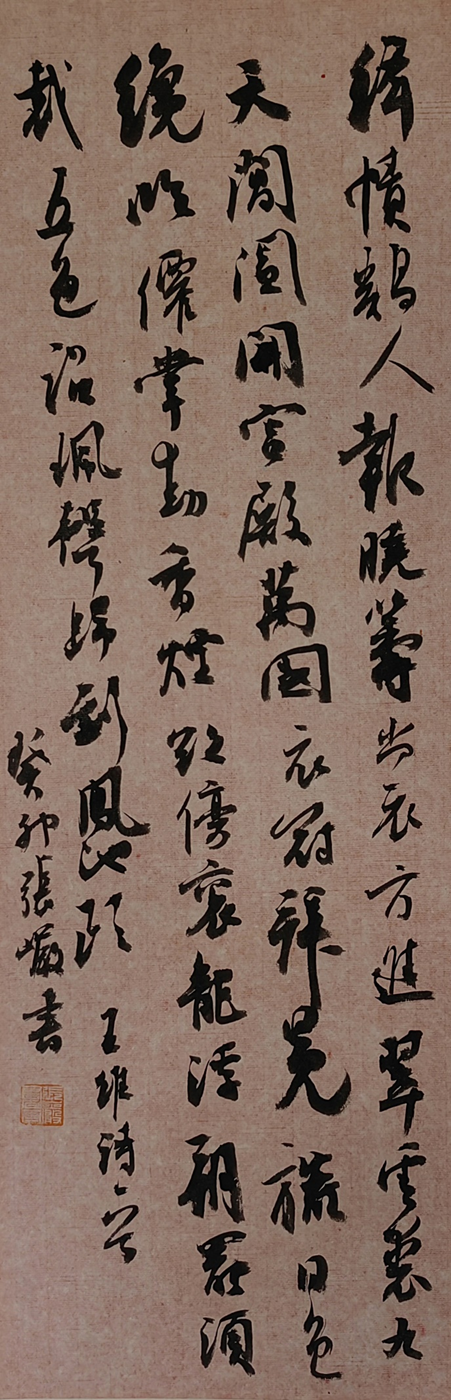 絳幘鷄人報曉籌尚衣方進翠雲裘九
天閶闔開宮殿萬國衣冠拜冕旒日色
纔臨僊掌動香煙欲傍衮龍浮朝罷須
裁五色詔珮聲歸到鳳池頭 王維詩一首
癸卯張嚴書